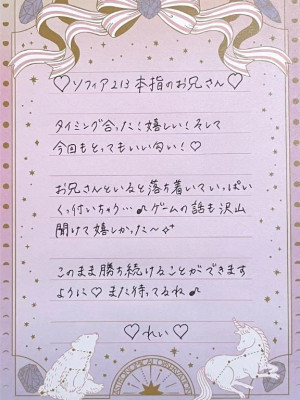 ♡ソフィア213 本指のお兄さん♡
タイミング合った!嬉しい!そして
今回もとってもいい匂い!♡
お兄さんといると落ち着いていっぱい
くっ付いちゃう…♪ゲームの話も沢山
聞けて嬉しかった〜✨
このまま勝ち続けることができます
ように♡また待ってるね♪
♡れい♡
ASTRONOMICAL OBSERVATION